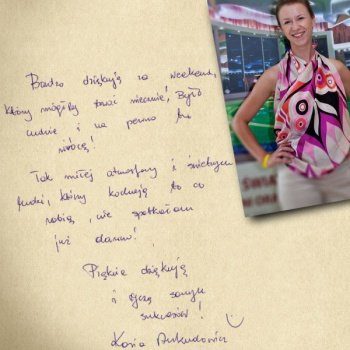 Bardzo dziękuję za weekend,
który mógłby trwać wiecznie! Było
cudnie i na pewno tu
wrócę!
Tak miłej atmosfery i świetnych
ludzi, którzy kochają to co
robią, nie spotkałam
już dawno!
Pięknie dziękuję
i życzę samych
sukcesów!
Kasia